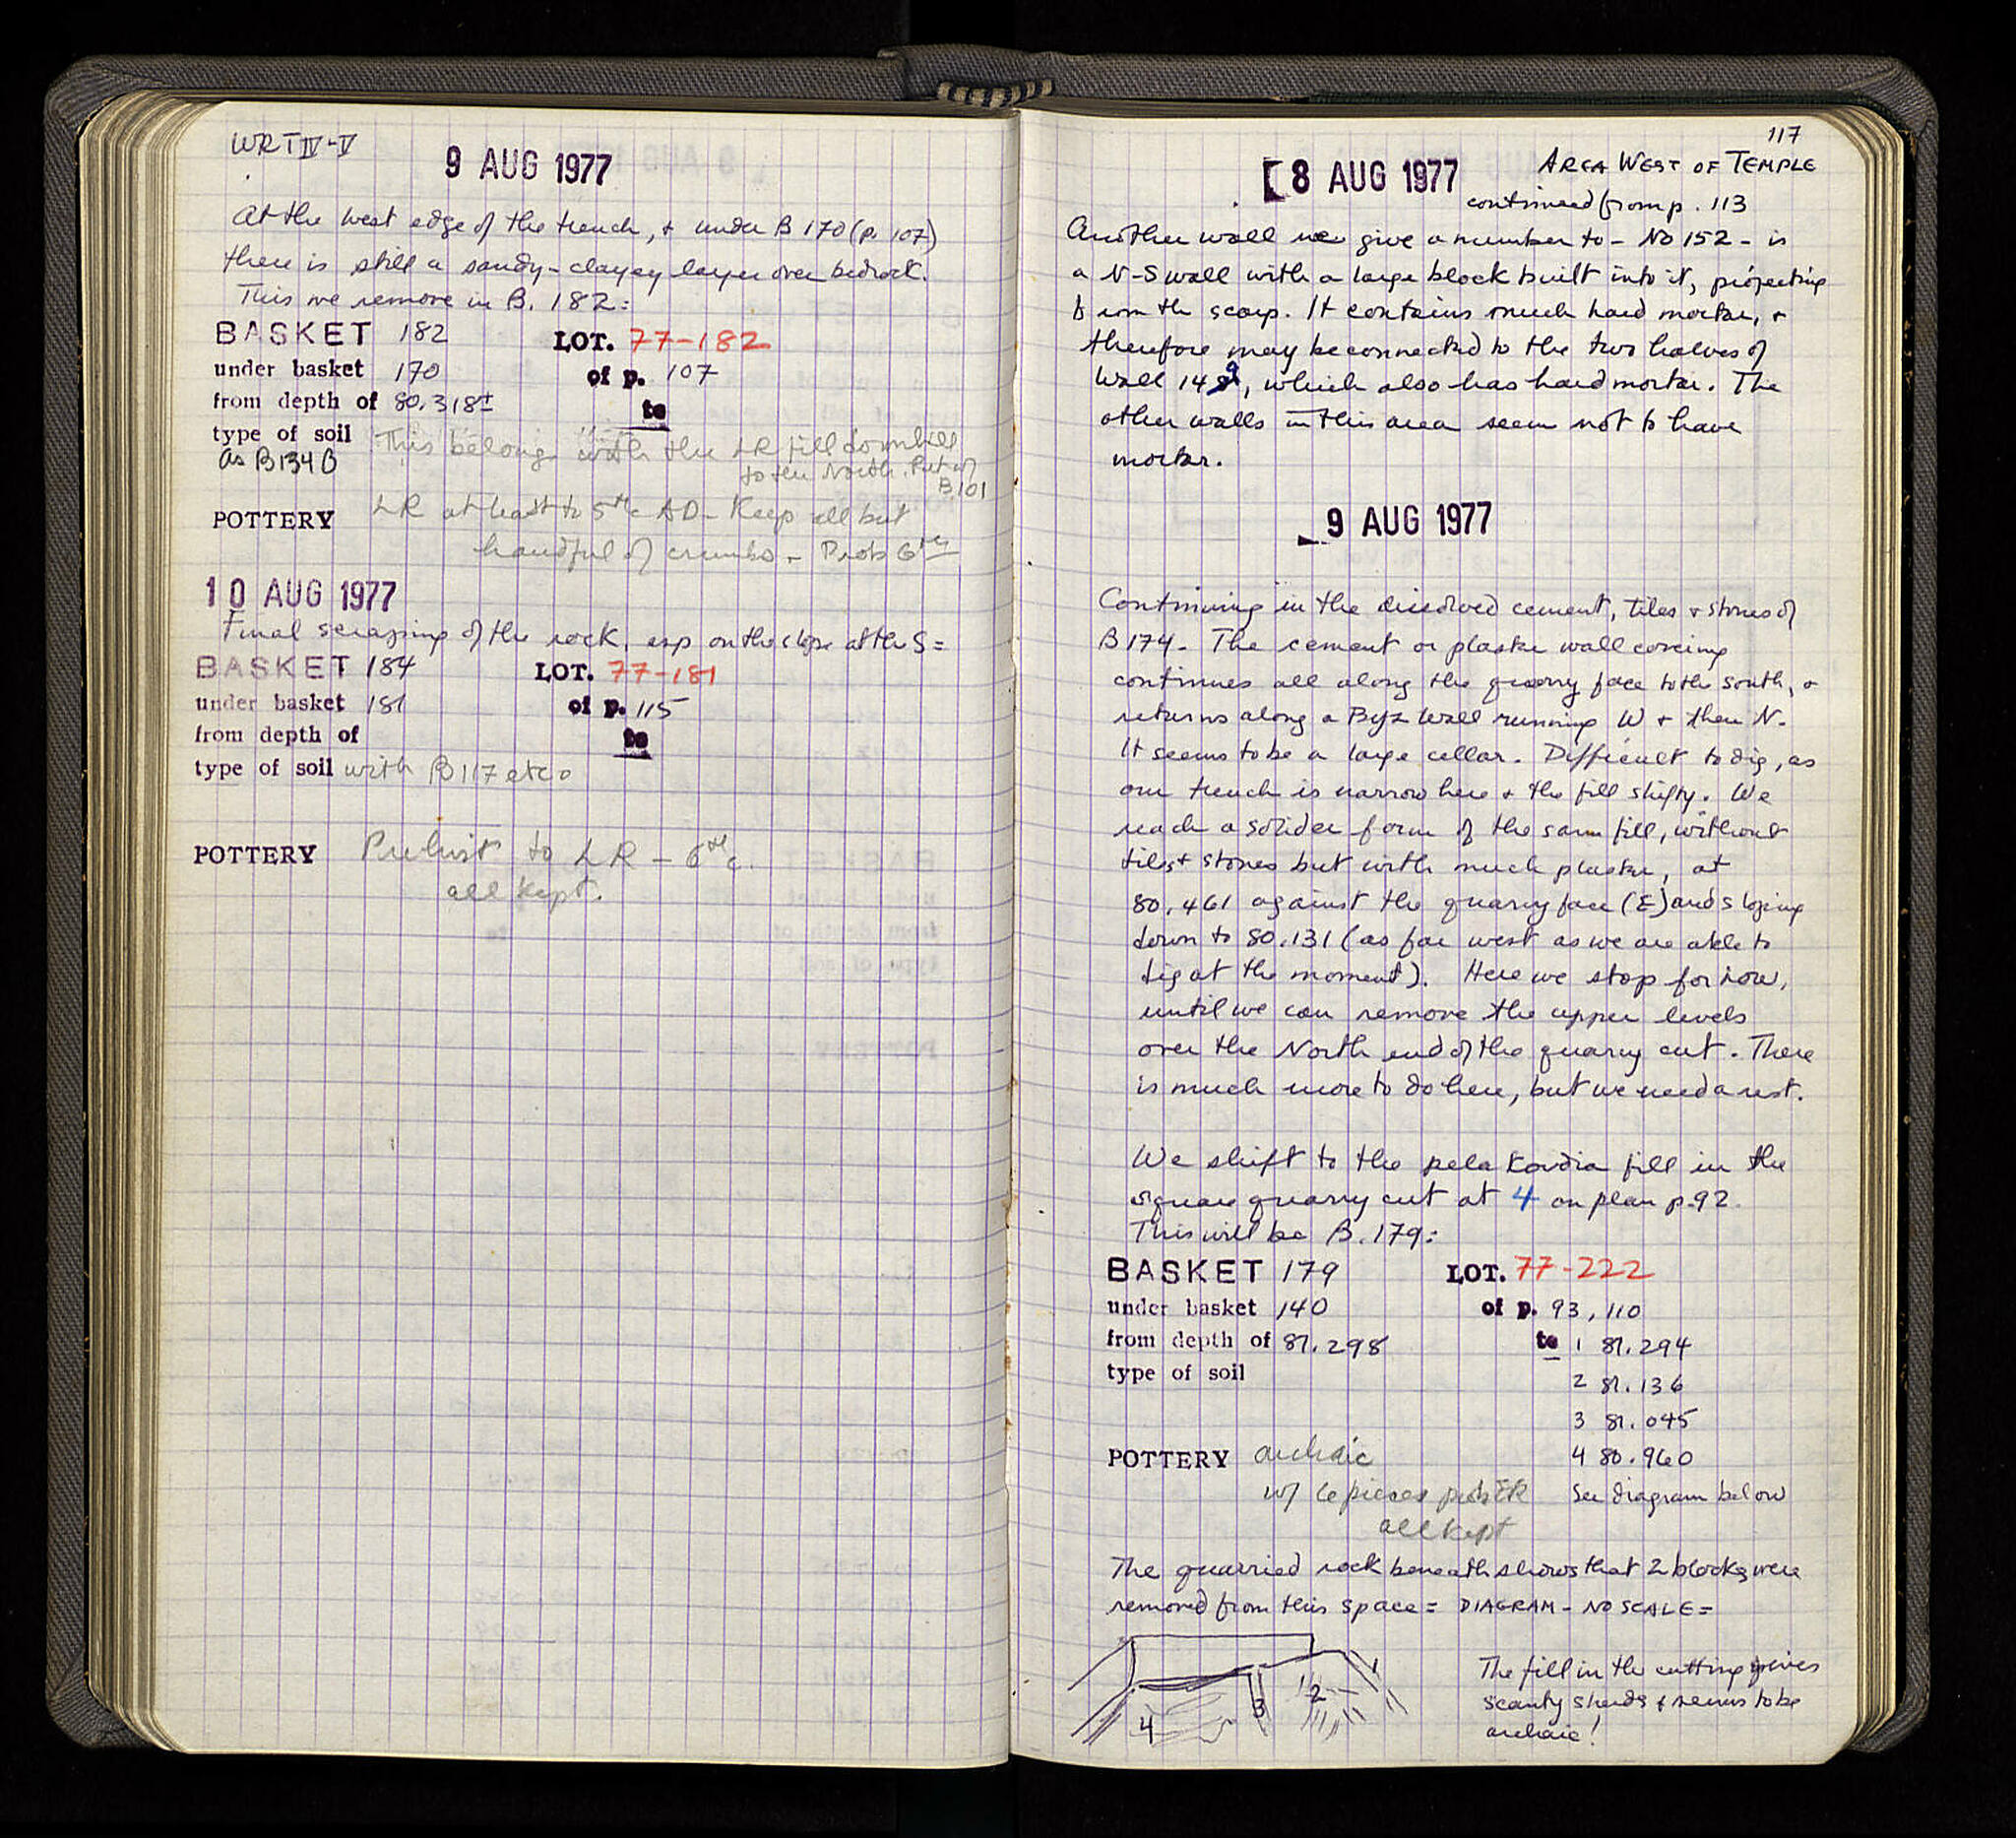 WRT IV-V
9 AUG 1977
At the west edge of the trench, + under B 170 (p. 107)
there is still a sandy-clayey layer over bedrock.
This we remove in B. 182:
BASKET 182 LOT. 77-182
under basket 170 of p. 107
from depth of 80.318± to
type of soil This belongs with the LR fill downhill
as B134B to the North. Part of
B.101
POTTERY LR at least to 5th c AD - Keep all but
handful of crumbs - Prob 6th
10 AUG 1977
Final scraping of the rock, esp on the slope at the S =
BASKET 184 LOT. 77-181
under basket 181 of p. 115
from depth of to
type of soil with B117 etc.
POTTERY Prehist to LR - 6th c.
all kept.
117
[8 AUG 1977 AREA WEST OF TEMPLE
continued from p. 113
Another wall we give a number to - No 152 - is
a N-S wall with a large block built into it, projecting
from the scarp. It contains much hard mortar, +
therefore may be connected to the two halves of
Wall 149, which also has hard mortar. The
other walls in this area seem not to have
mortar.
9 AUG 1977
Continuing in the dissolved cement, tiles + stones of
B 174. The cement or plaster wall covering
continues all along the quarry face to the south, +
returns along a Byz wall running W + then N.
It seems to be a large cellar. Difficult to dig, as
our trench is narrow here + the fill shifty. We
reach a solider form of the same fill, without
tiles + stones but with much plaster, at
80.461 against the quarry face (E) and sloping
down to 80.131 (as far west as we are able to
dig at the moment). Here we stop for now,
until we can remove the upper levels
over the North end of the quarry cut. There
is much more to do here, but we need a rest.
We shift to the pelekoudia fill in the
square quarry cut at 4 on plan p. 92.
This will be B. 179:
BASKET 179 LOT. 77-222
under basket 140 of p. 93, 110
from depth of 81.298 to 1 81.294
type of soil
2 81.136
3 81.045
POTTERY archaic 4 80.960
w/ 6 pieces prob ER See diagram below
all kept
The quarried rock beneath shows that 2 blocks were
removed from this space = DIAGRAM - NO SCALE =
1
2
3
4
The fill in the cutting gives
scanty sherds + seems to be
archaic!